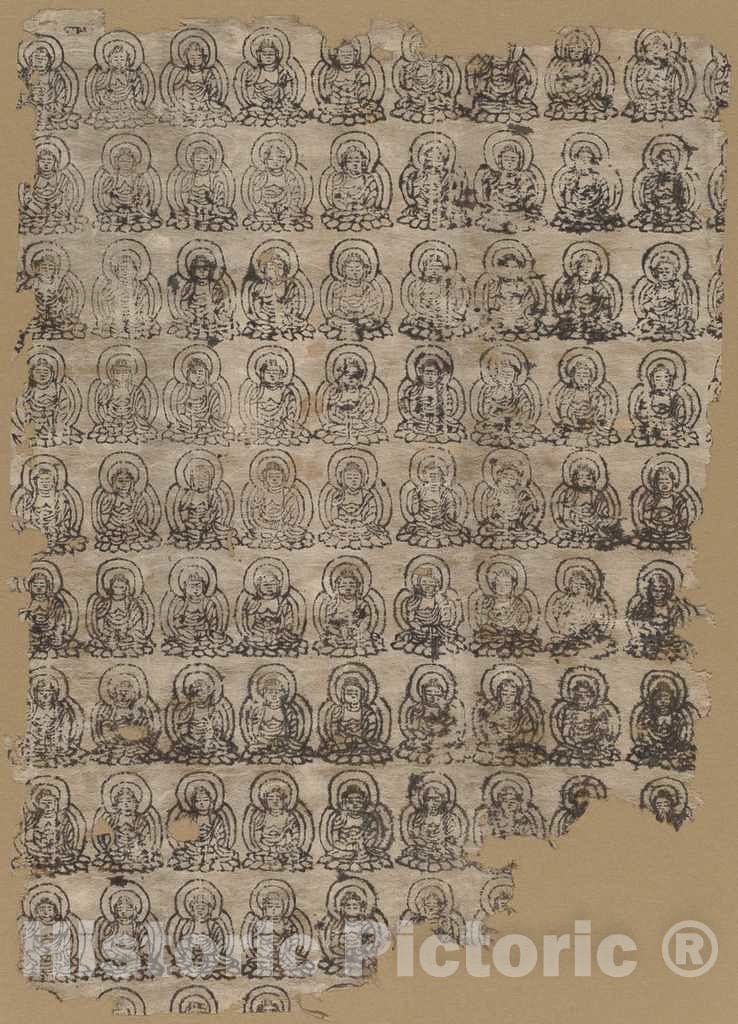 Historic Pictoric ®